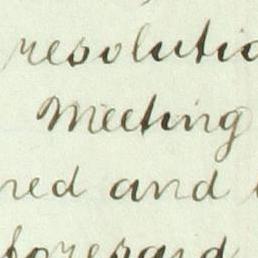 resolutio
Meeting
ned and
foresaid